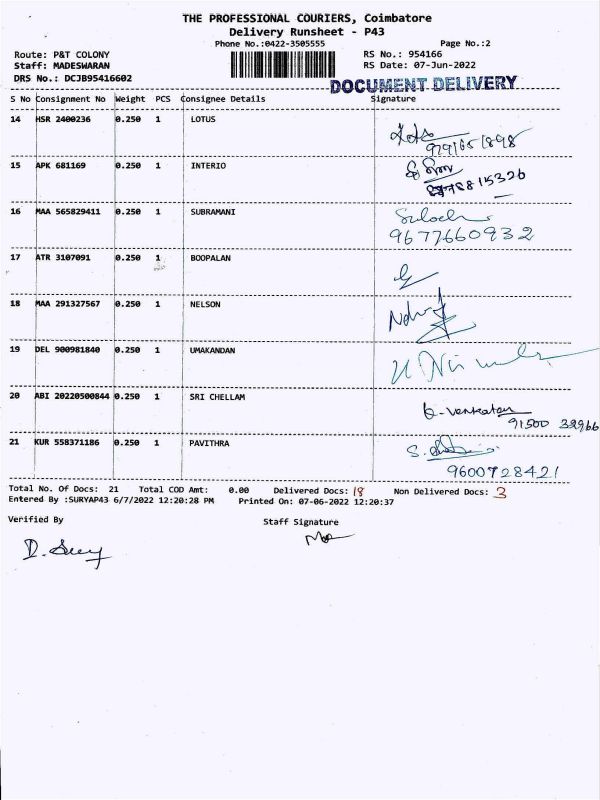 THE PROFESSIONAL COURIERS, Coimbatore
Delivery Runsheet - P43
Phone No.:0422-3505555 Page No.:2
Route: P&T COLONY RS No.: 954166
Staff: MADESWARAN RS Date: 07-Jun-2022
DRS No.: DCJB95416602
DOCUMENT DELIVERY
S No Consignment No Weight PCS Consignee Details Signature
14 HSR 2400236 0.250 1 LOTUS
15 APK 681169 0.250 1 INTERIO
16 MAA 565829411 0.250 1 SUBRAMANI
9677660932
17 ATR 3107091 0.250 1 BOOPALAN
18 MAA 291327567 0.250 1 NELSON
19 DEL 900981840 0.250 1 UMAKANDAN
20 ABI 20220500844 0.250 1 SRI CHELLAM
21 KUR 558371186 0.250 1 PAVITHRA
9600728421
Total No. Of Docs: 21 Total COD Amt: 0.00 Delivered Docs: 18 Non Delivered Docs: 3
Entered By :SURYAP43 6/7/2022 12:20:28 PM Printed On: 07-06-2022 12:20:37
Verified By Staff Signature